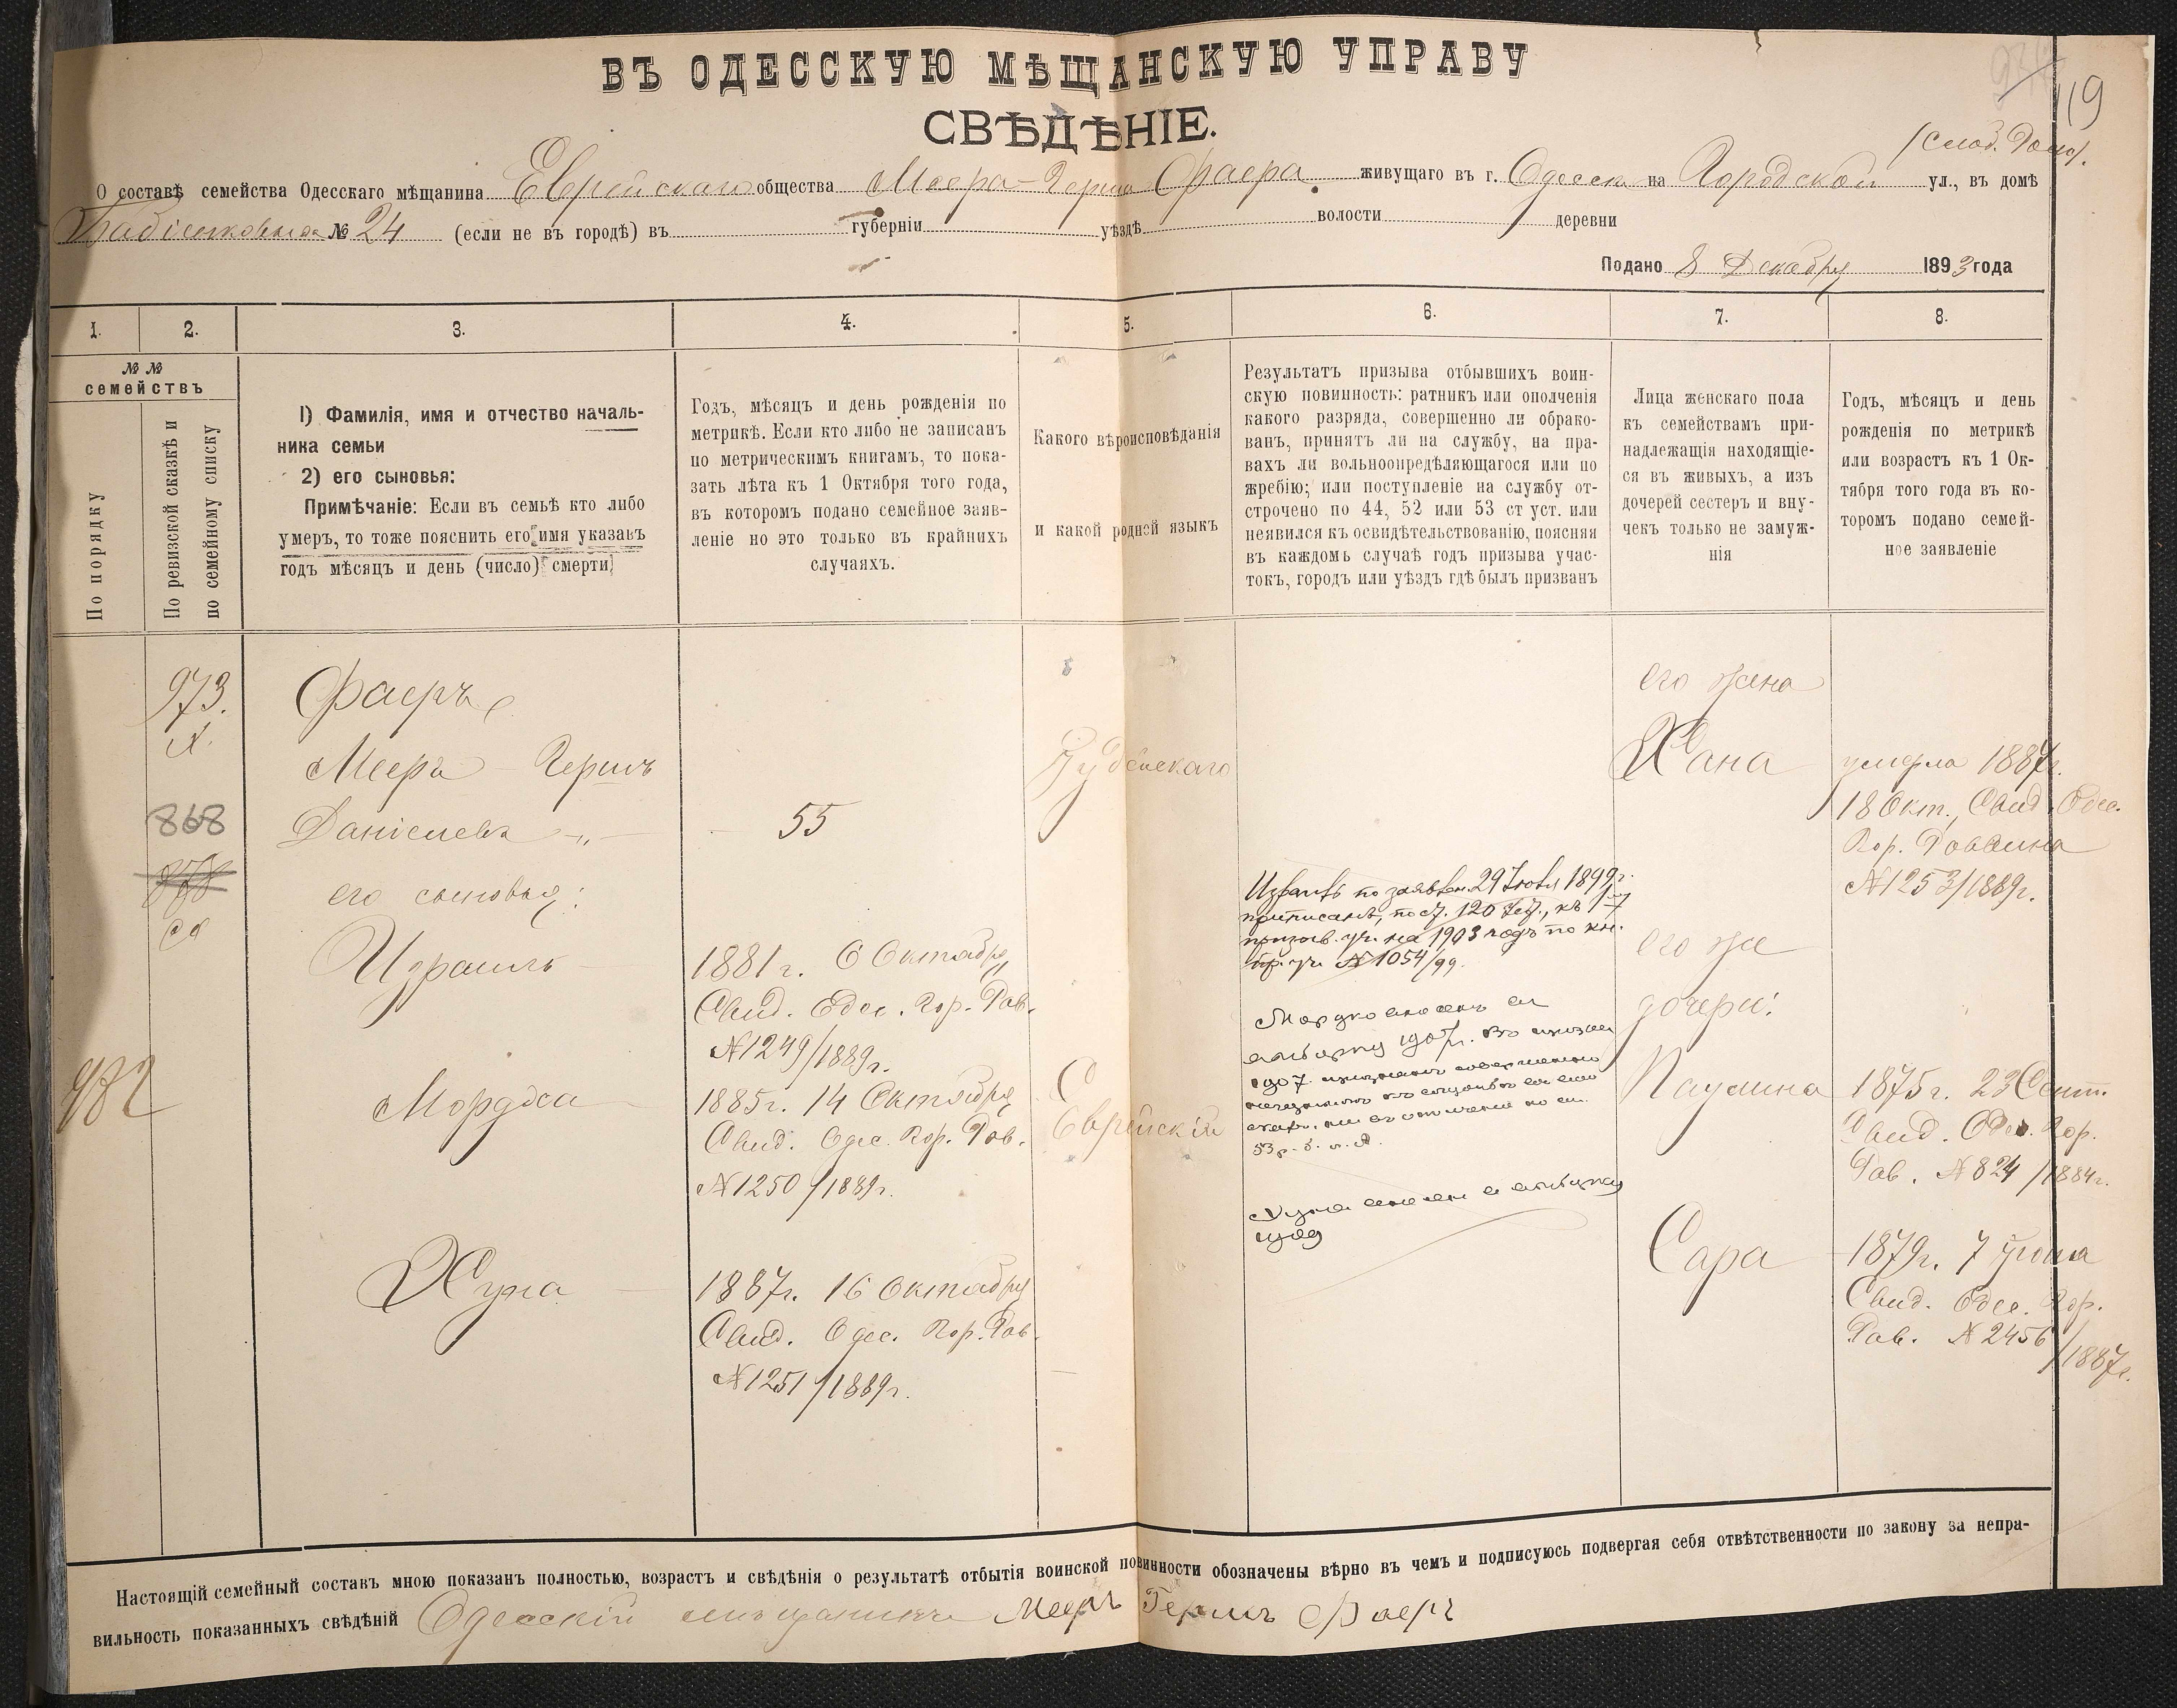 ВЪ ОДЕССКУЮ МѢЩАНСКУЮ УПРАВУ
119
СВѢДѢНІЕ.
О составѣ семейства Одесскаго мѣщанина Еврейскаго общества Меера-Герша Фаера живущаго въ г. Одессѣ на Городской ул., въ домѣ
№ 24 (если не въ городѣ) въ губерніи уѣздѣ волости деревни
Подано 8 Декабря 1893 года
1. 2. 3. 4. 5. 6. 7. 8.
№ №
семействъ
По порядку
По ревизской сказкѣ и
по семейному списку
1) Фамилія, имя и отчество началь-
ника семьи
2) его сыновья:
Примѣчаніе: Если въ семьѣ кто либо
умеръ, то тоже пояснить его имя указавъ
годъ мѣсяцъ и день (число) смерти
Годъ, мѣсяцъ и день рожденія по
метрикѣ. Если кто либо не записанъ
по метрическимъ книгамъ, то пока-
зать лѣта къ 1 Октября того года,
въ которомъ подано семейное заяв-
леніе но это только въ крайнихъ
случаяхъ.
Какого вѣроисповѣданія
и какой родной языкъ
Результатъ призыва отбывшихъ воин-
скую повинность: ратникъ или ополченія
какого разряда, совершенно ли обрако-
ванъ, принятъ ли на службу, на пра-
вахъ ли вольноопредѣляющагося или по
жребію; или поступленіе на службу от-
строчено по 44, 52 или 53 ст уст. или
неявился къ освидѣтельствованію, поясняя
въ каждомъ случаѣ годъ призыва учас-
токъ, городъ или уѣздъ гдѣ былъ призванъ
Лица женскаго пола
къ семействамъ при-
надлежащія находящіе-
ся въ живыхъ, а изъ
дочерей сестеръ и вну-
чекъ только не замуж-
нія
Годъ, мѣсяцъ и день
рожденія по метрикѣ
или возрастъ къ 1 Ок-
тября того года въ ко-
торомъ подано семей-
ное заявленіе
973.
868
982
Фаеръ
Мееръ Гершъ
Даніелевъ
его сыновья:
Израиль
Мордха
Хуна
55
1881 г. 6 Октября
Свид. Одес. Гор. Рав.
№ 1249/1889 г.
1885 г. 14 Октября
Свид. Одес. Гор. Рав.
№ 1250/1889 г.
1887 г. 16 Октября
Свид. Одес. Гор. Рав.
№ 1251/1889 г.
Іудейскаго
Еврейскій
по заявлен. 29 Іюля 1899 г.
приписанъ, по ст. 120 Уст., къ 1
призыв. уч. на 1903 годъ по кн.
пр. уч. № 1054/99.
его жена
Хана
его же
дочери:
Паулина
Сара
умерла 1887 г.
18 Окт., Свид. Одес.
Гор. Раввина
№ 1253/1889 г.
1875 г. 23 Сент.
Свид. Одес. Гор.
Рав. № 824/1884 г.
1879 г. 7 Іюня
Свид. Одес. Гор.
Рав. № 2456/1887 г.
Настоящій семейный составъ мною показанъ полностью, возрастъ и свѣдѣнія о результатѣ отбытія воинской повинности обозначены вѣрно въ чемъ и подписуюсь подвергая себя отвѣтственности по закону за непра-
вильность показанныхъ свѣдѣній Одесскій мѣщанинъ Мееръ Гершъ Фаеръ